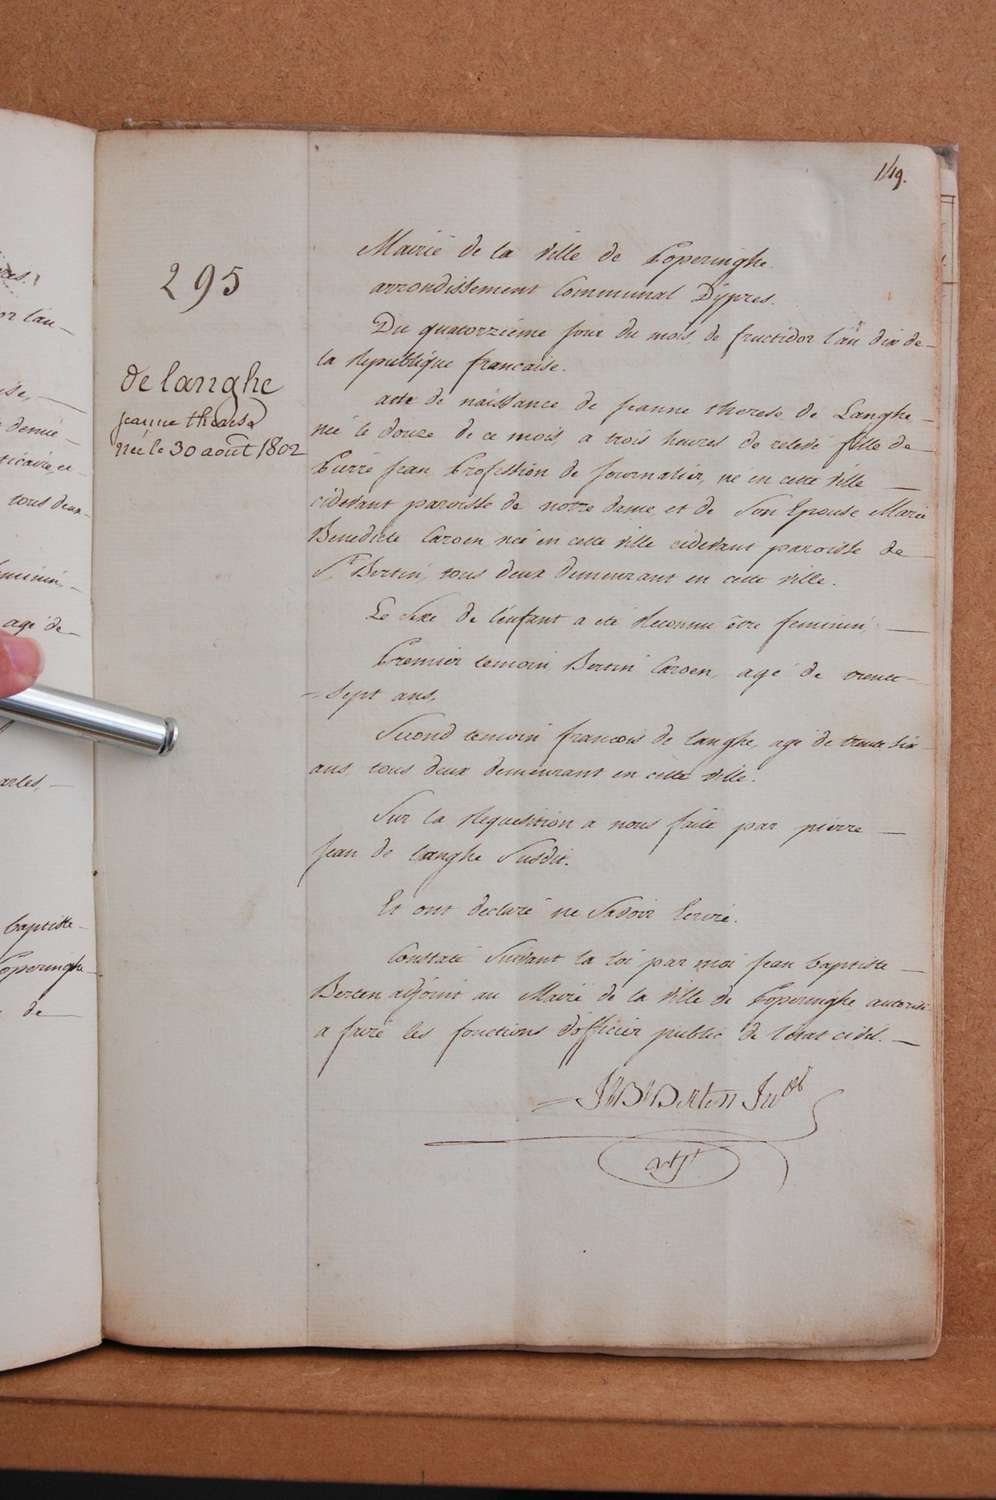 149.
295
de langhe
jeanne therese
née le 30 août 1802
Mairie de la Ville de Poperinghe.
arrondissement Communal D'ypres.
Du quatorzieme jour du mois de fructidor l'an dix de
la Republique francaise.
acte de naissance de jeanne therese de Langhe
née le douze de ce mois a trois heures de relevé fille de
Pierre jean Profession de journalier, né en cette ville
cidevant paroisse de notre dame et de Son Epouse Marie
Benedicte Caroen née en cette ville cidevant paroisse de
St Bertin, tous deux demeurant en cette ville.
Le Sexe de l'enfant a été Reconnu être feminin,
Premier temoin Bertin Caroen, agé de trente
Sept ans.
Second temoin francois de langhe agé de trente Six
ans tous deux demeurant en cette ville.
Sur la Requisition a nous faite par pierre
jean de langhe Susdit.
Et ont declaré ne Savoir Ecrire.
Constaté Suivant la loi par moi jean baptiste
Berten adjoint au Maire de la Ville de Poperinghe autorisé
a faire les fonctions d'officier public de l'etat civil.
adjt
tous deux
agé de
arles,
baptiste
poperinghe
de